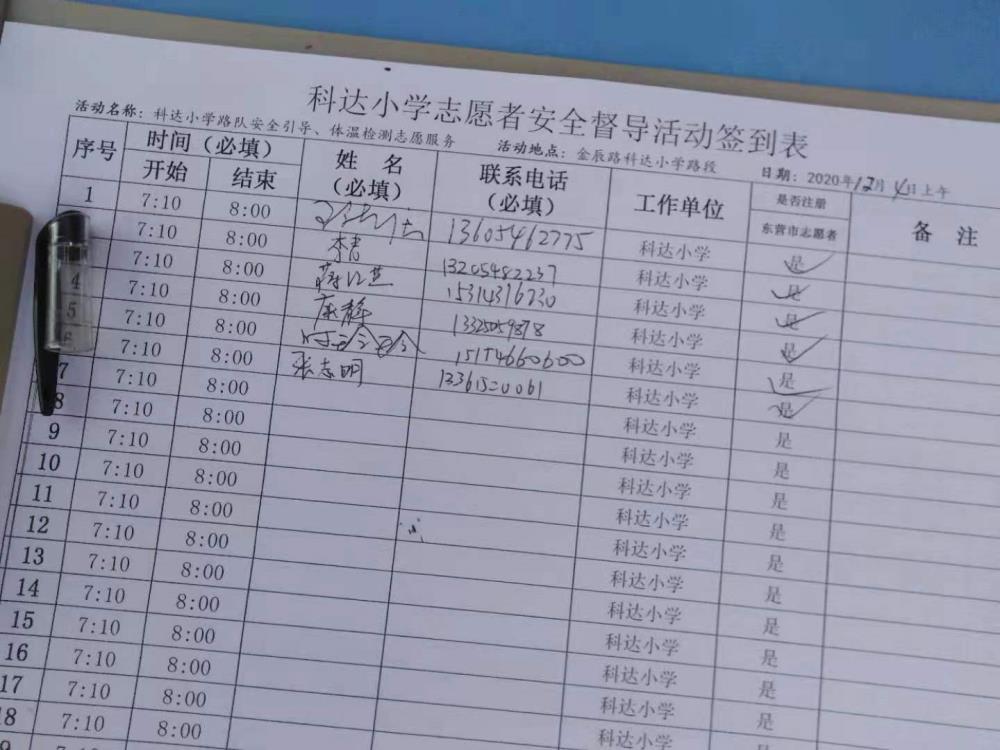 科达小学志愿者安全督导活动签到表
活动名称：科达小学路队安全引导、体温检测志愿服务 活动地点：金辰路科达小学路段 日期：2020年12月4日上午
序号 时间（必填） 姓 名（必填） 联系电话（必填） 工作单位 是否注册东营市志愿者 备 注
开始 结束
1 7:10 8:00 13605462775 科达小学 是
7:10 8:00 李青 13205482237 科达小学 是
7:10 8:00 15314316730 科达小学 是
4 7:10 8:00 康静 13325059878 科达小学 是
5 7:10 8:00 15154660600 科达小学 是
6 7:10 8:00 张志明 科达小学 是
7 7:10 8:00 科达小学 是
8 7:10 8:00 科达小学 是
9 7:10 8:00 科达小学 是
10 7:10 8:00 科达小学 是
11 7:10 8:00 科达小学 是
12 7:10 8:00 科达小学 是
13 7:10 8:00 科达小学 是
14 7:10 8:00 科达小学 是
15 7:10 8:00 科达小学 是
16 7:10 8:00 科达小学 是
17 7:10 8:00 科达小学
18 7:10